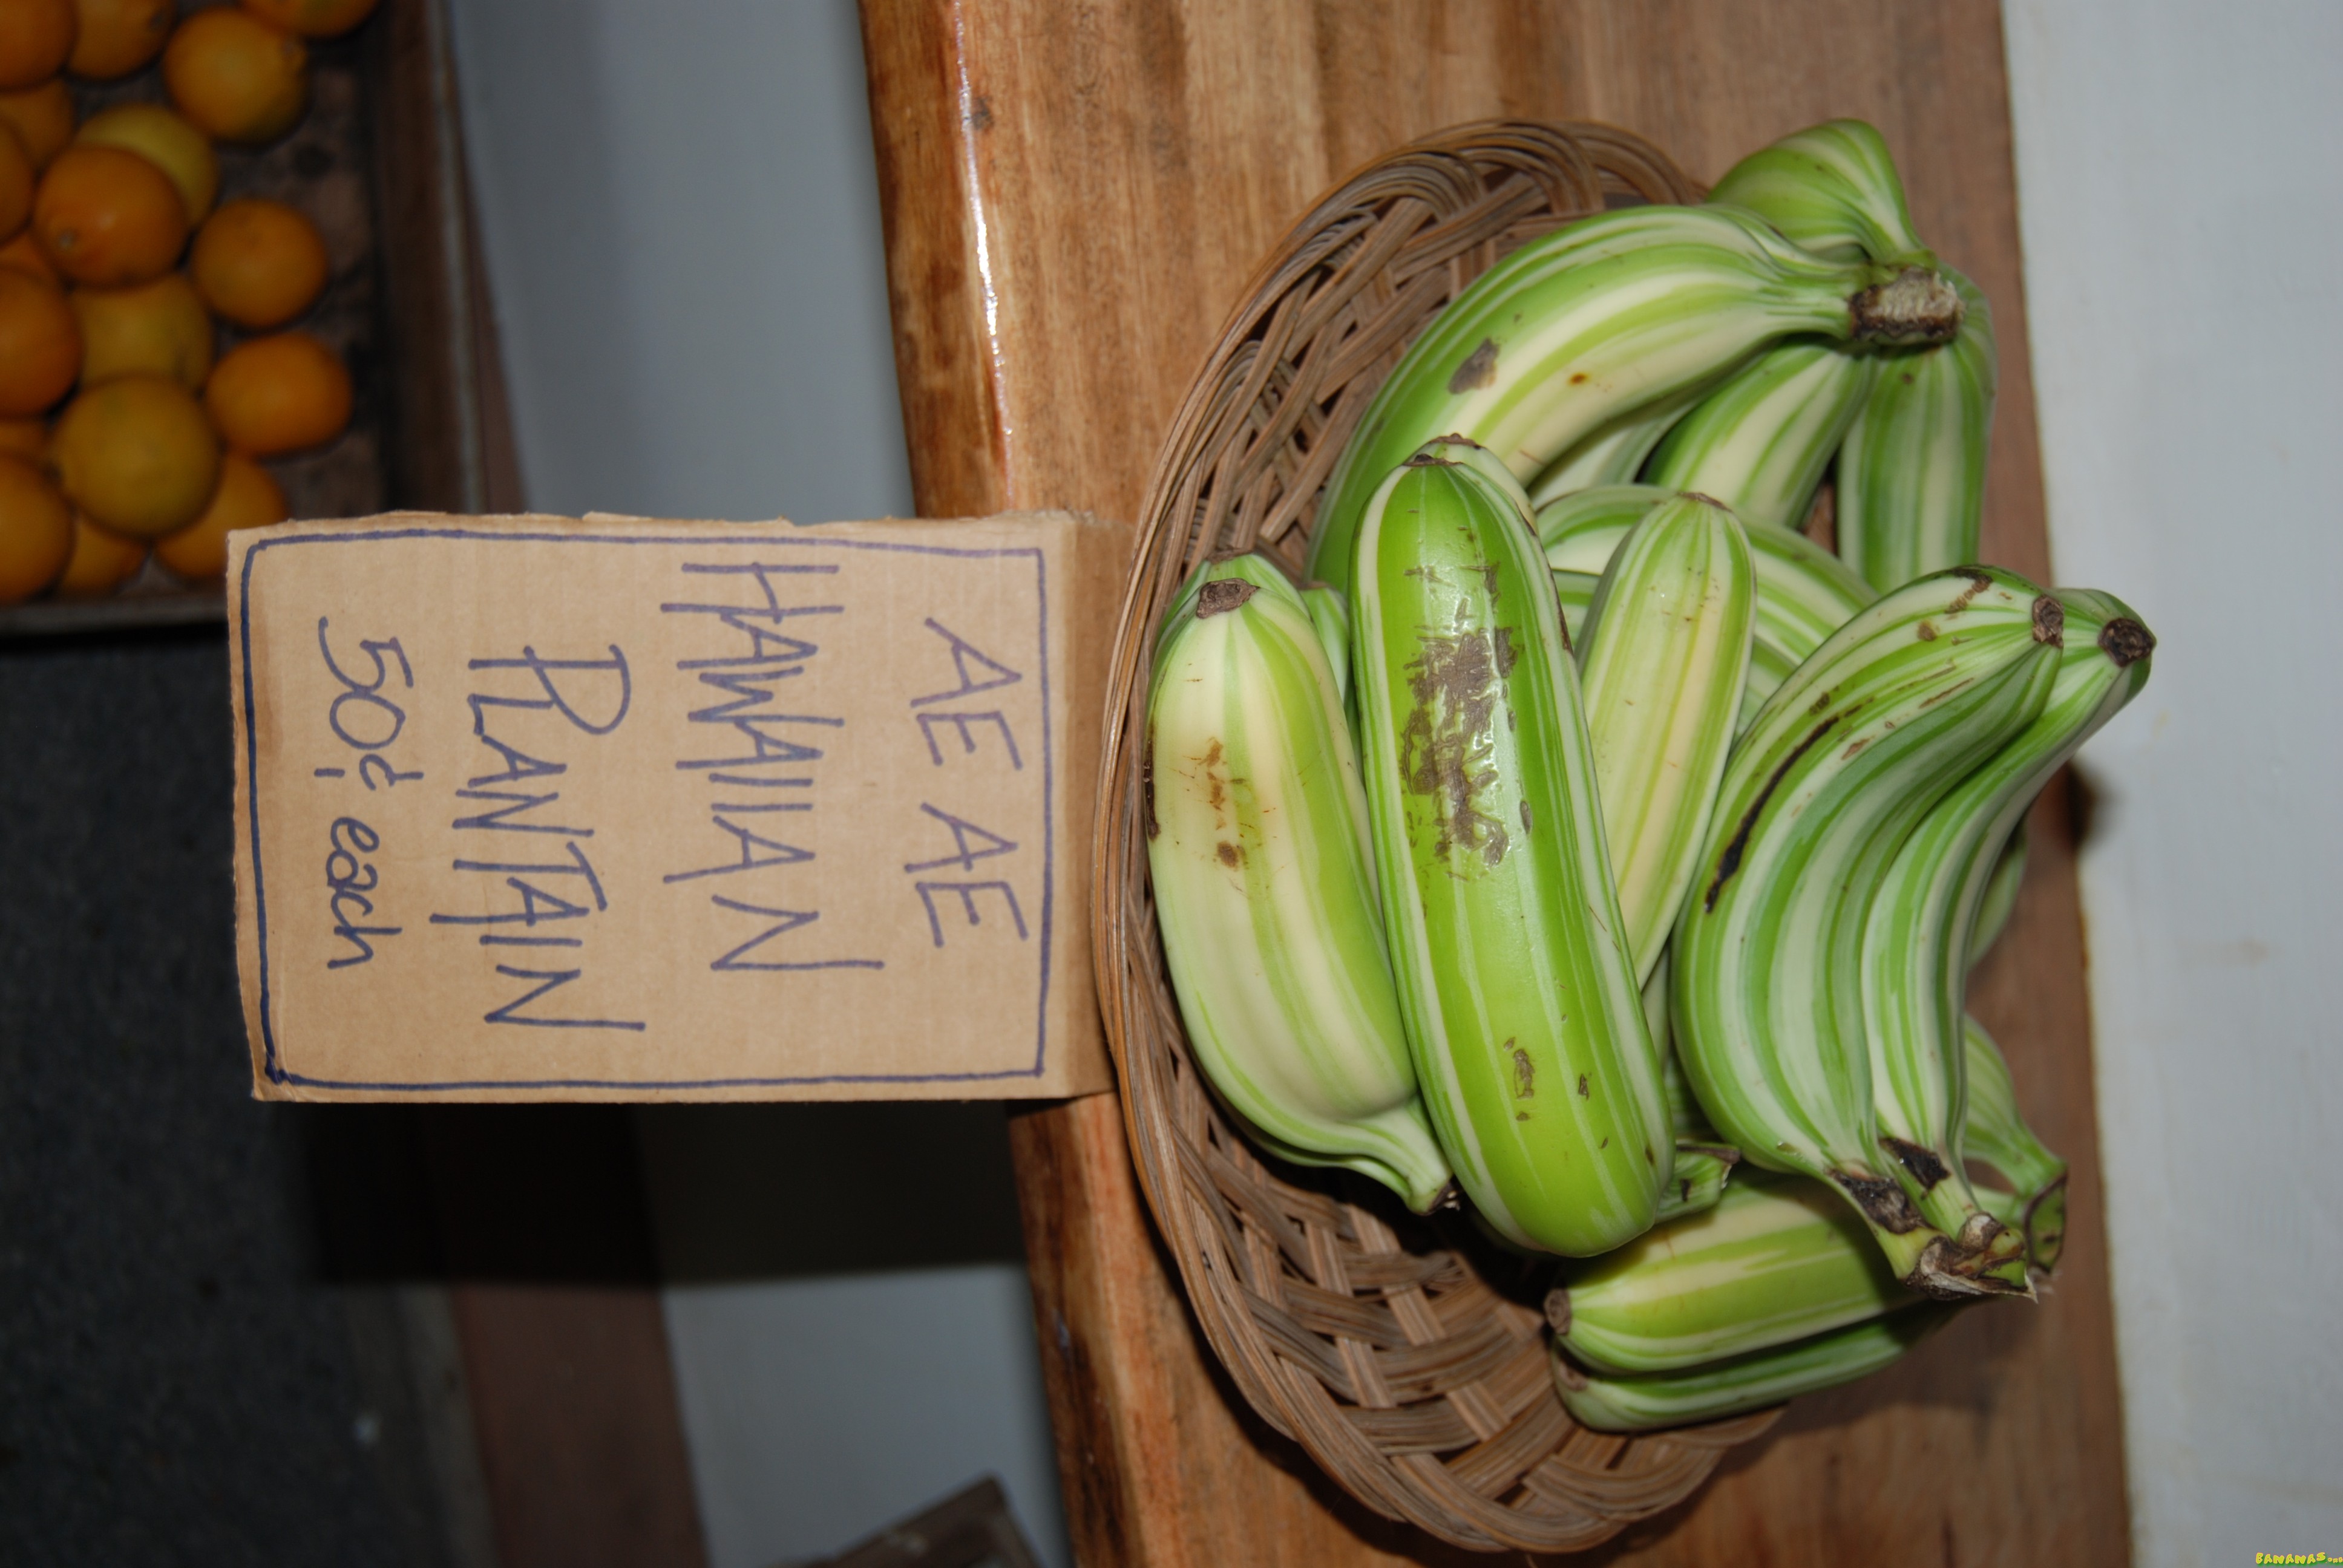 AE AE
HAWAIIAN
PLANTAIN
50¢ each
BANANAS